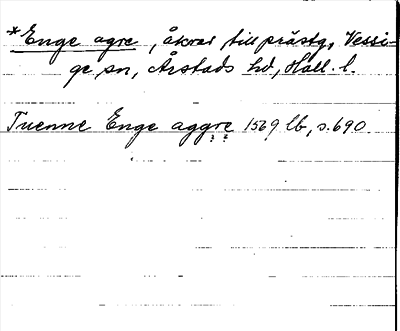 *Enge agre, åkrar till prästg., Vessi-
ge sn, Årstads hd, Hall. l.
Tuenne Enge aggre 1569 lb, s. 690.